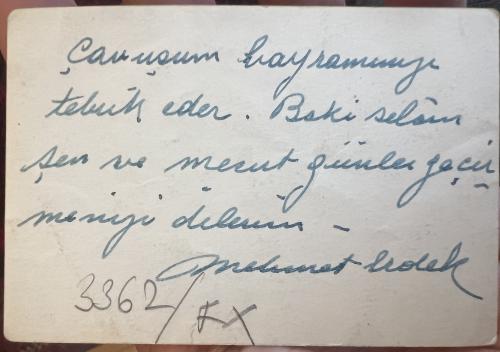 Çavuşum bayramınızı
tebrik eder. Baki selâm
şen ve mesut günler geçir
menizi dilerim –
Mehmet Erdek
3362/